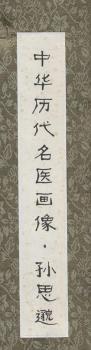 中华历代名医画像·孙思邈